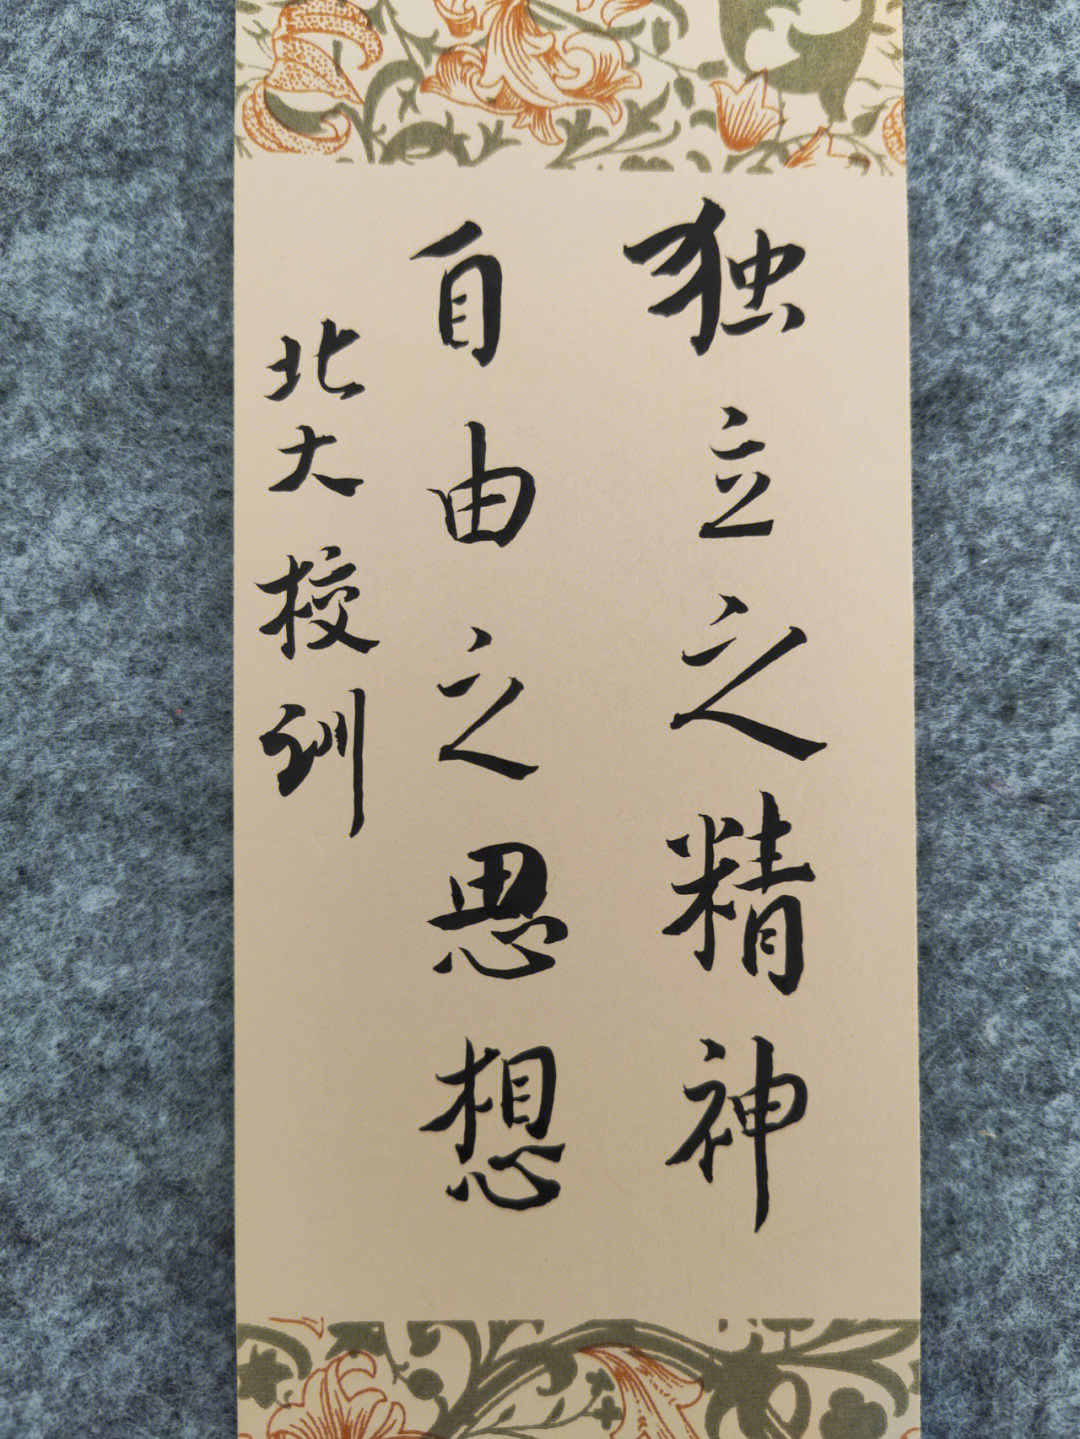 独立之精神
自由之思想
北大校训